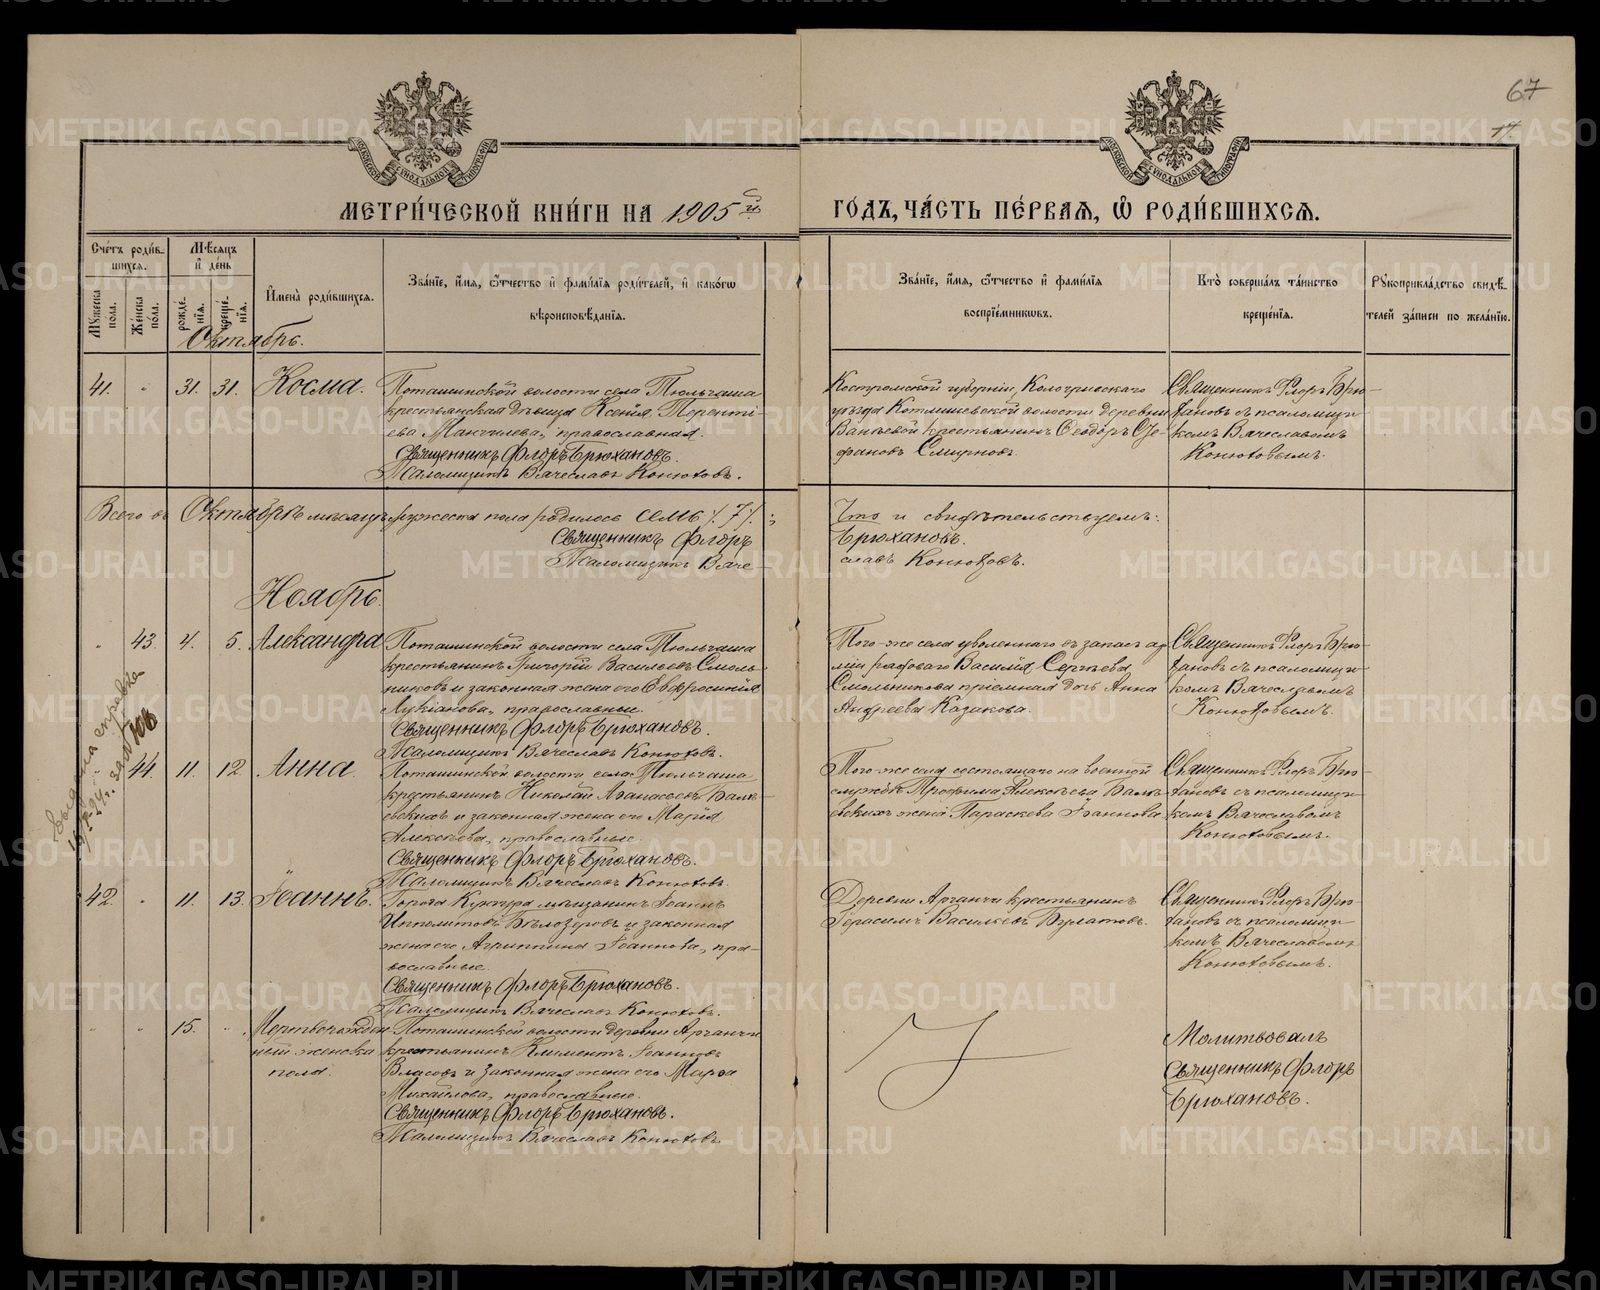 67
17.
МОСКОВСКОЙ СИНОДАЛЬНОЙ ТИПОГРАФІИ
МОСКОВСКОЙ СИНОДАЛЬНОЙ ТИПОГРАФІИ
МЕТРИ́ЧЕСКОЙ КНИ́ГИ НА 1905й
ГО́ДЪ, ЧА́СТЬ ПЕ́РВАЯ, Ѽ РОДИ́ВШИХСЯ.
Сче́тъ роди́в-
шихся.
Му́жеска
пола.
Же́нска
по́ла.
Мѣ́сяцъ
и҆ де́нь
рожде-
нія.
креще́-
нія.
И҆мена̀ роди́вшихся.
Зва́ніе, и҆́мя, ѻ҆́тчество и҆ фами́лія роди́телей, и҆ како́гѡ
вѣроисповѣ́данія.
Зва́ніе, и҆́мя, ѻ҆́тчество и҆ фами́лія
воспріе́мниковъ.
Кто̀ соверша́лъ та́инство
креще́нія.
Рукоприкла́дство свидѣ́-
телей за́писи по жела́нію.
Октябрь.
41. " 31. 31. Косма.
Поташинской волости села Тюльгаша
крестьянская дѣвица Ксенія Теренті-
ева, православная.
Священникъ Флоръ Брюхановъ.
Псаломщикъ Вячеславъ Конюховъ.
Костромской губерніи, Кологривскаго
уѣзда волости деревни
крестьянинъ Ѳеодоръ Сте-
фановъ Смирновъ.
Священникъ Флоръ Брю-
хановъ съ псаломщи-
комъ Вячеславомъ
Конюховымъ.
Всего въ Октябрѣ мѣсяцѣ мужеска пола родилось семь /. 7 /. ;
Священникъ Флоръ
Псаломщикъ Вяче-
Что и свидѣтельствуемъ:
Брюхановъ.
славъ Конюховъ.
Ноябрь.
" 43. 4. 5. Александра
Поташинской волости села Тюльгаша
крестьянинъ Григорій Васильевъ Смоль-
никовъ и законная жена его Евфросинія
Лукіанова, православные.
Священникъ Флоръ Брюхановъ.
Псаломщикъ Вячеславъ Конюховъ.
Того-же села уволеннаго въ запасъ ар-
міи рядоваго Василія Сергѣева
Смольникова пріемная дочь Анна
Андреева Казакова.
Священникъ Флоръ Брю-
хановъ съ псаломщи-
комъ Вячеславомъ
Конюховымъ.
Выдана справка
44. 11. 12. Анна.
Поташинской волости села Тюльгаша
крестьянинъ Николай Аѳанасьевъ
и законная жена его Марія
Алексѣева, православные.
Священникъ Флоръ Брюхановъ.
Псаломщикъ Вячеславъ Конюховъ.
Того-же села состоящаго на военной
службѣ Трофима Алексѣева
жена Параскева Іоаннова.
Священникъ Флоръ Брю-
хановъ съ псаломщи-
комъ Вячеславомъ
Конюховымъ.
42. " 11. 13. Іоаннъ.
Города Кунгура мѣщанинъ Іоаннъ
Ипполитовъ Бѣлозеровъ и законная
жена его Агриппина Іоаннова, пра-
вославные.
Священникъ Флоръ Брюхановъ.
Псаломщикъ Вячеславъ Конюховъ.
Деревни Арганчи крестьянинъ
Герасимъ Васильевъ Булатовъ.
Священникъ Флоръ Брю-
хановъ съ псаломщи-
комъ Вячеславомъ
Конюховымъ.
" " 15. " Мертворожден-
ный женска
пола.
Поташинской волости деревни Арганчи
крестьянинъ Климентъ Іоанновъ
Власовъ и законная жена его Марѳа
Михайлова, православные.
Священникъ Флоръ Брюхановъ.
Псаломщикъ Вячеславъ Конюховъ
Молитвовалъ
Священникъ Флоръ
Брюхановъ.
METRIKI.GASO-URAL.RU